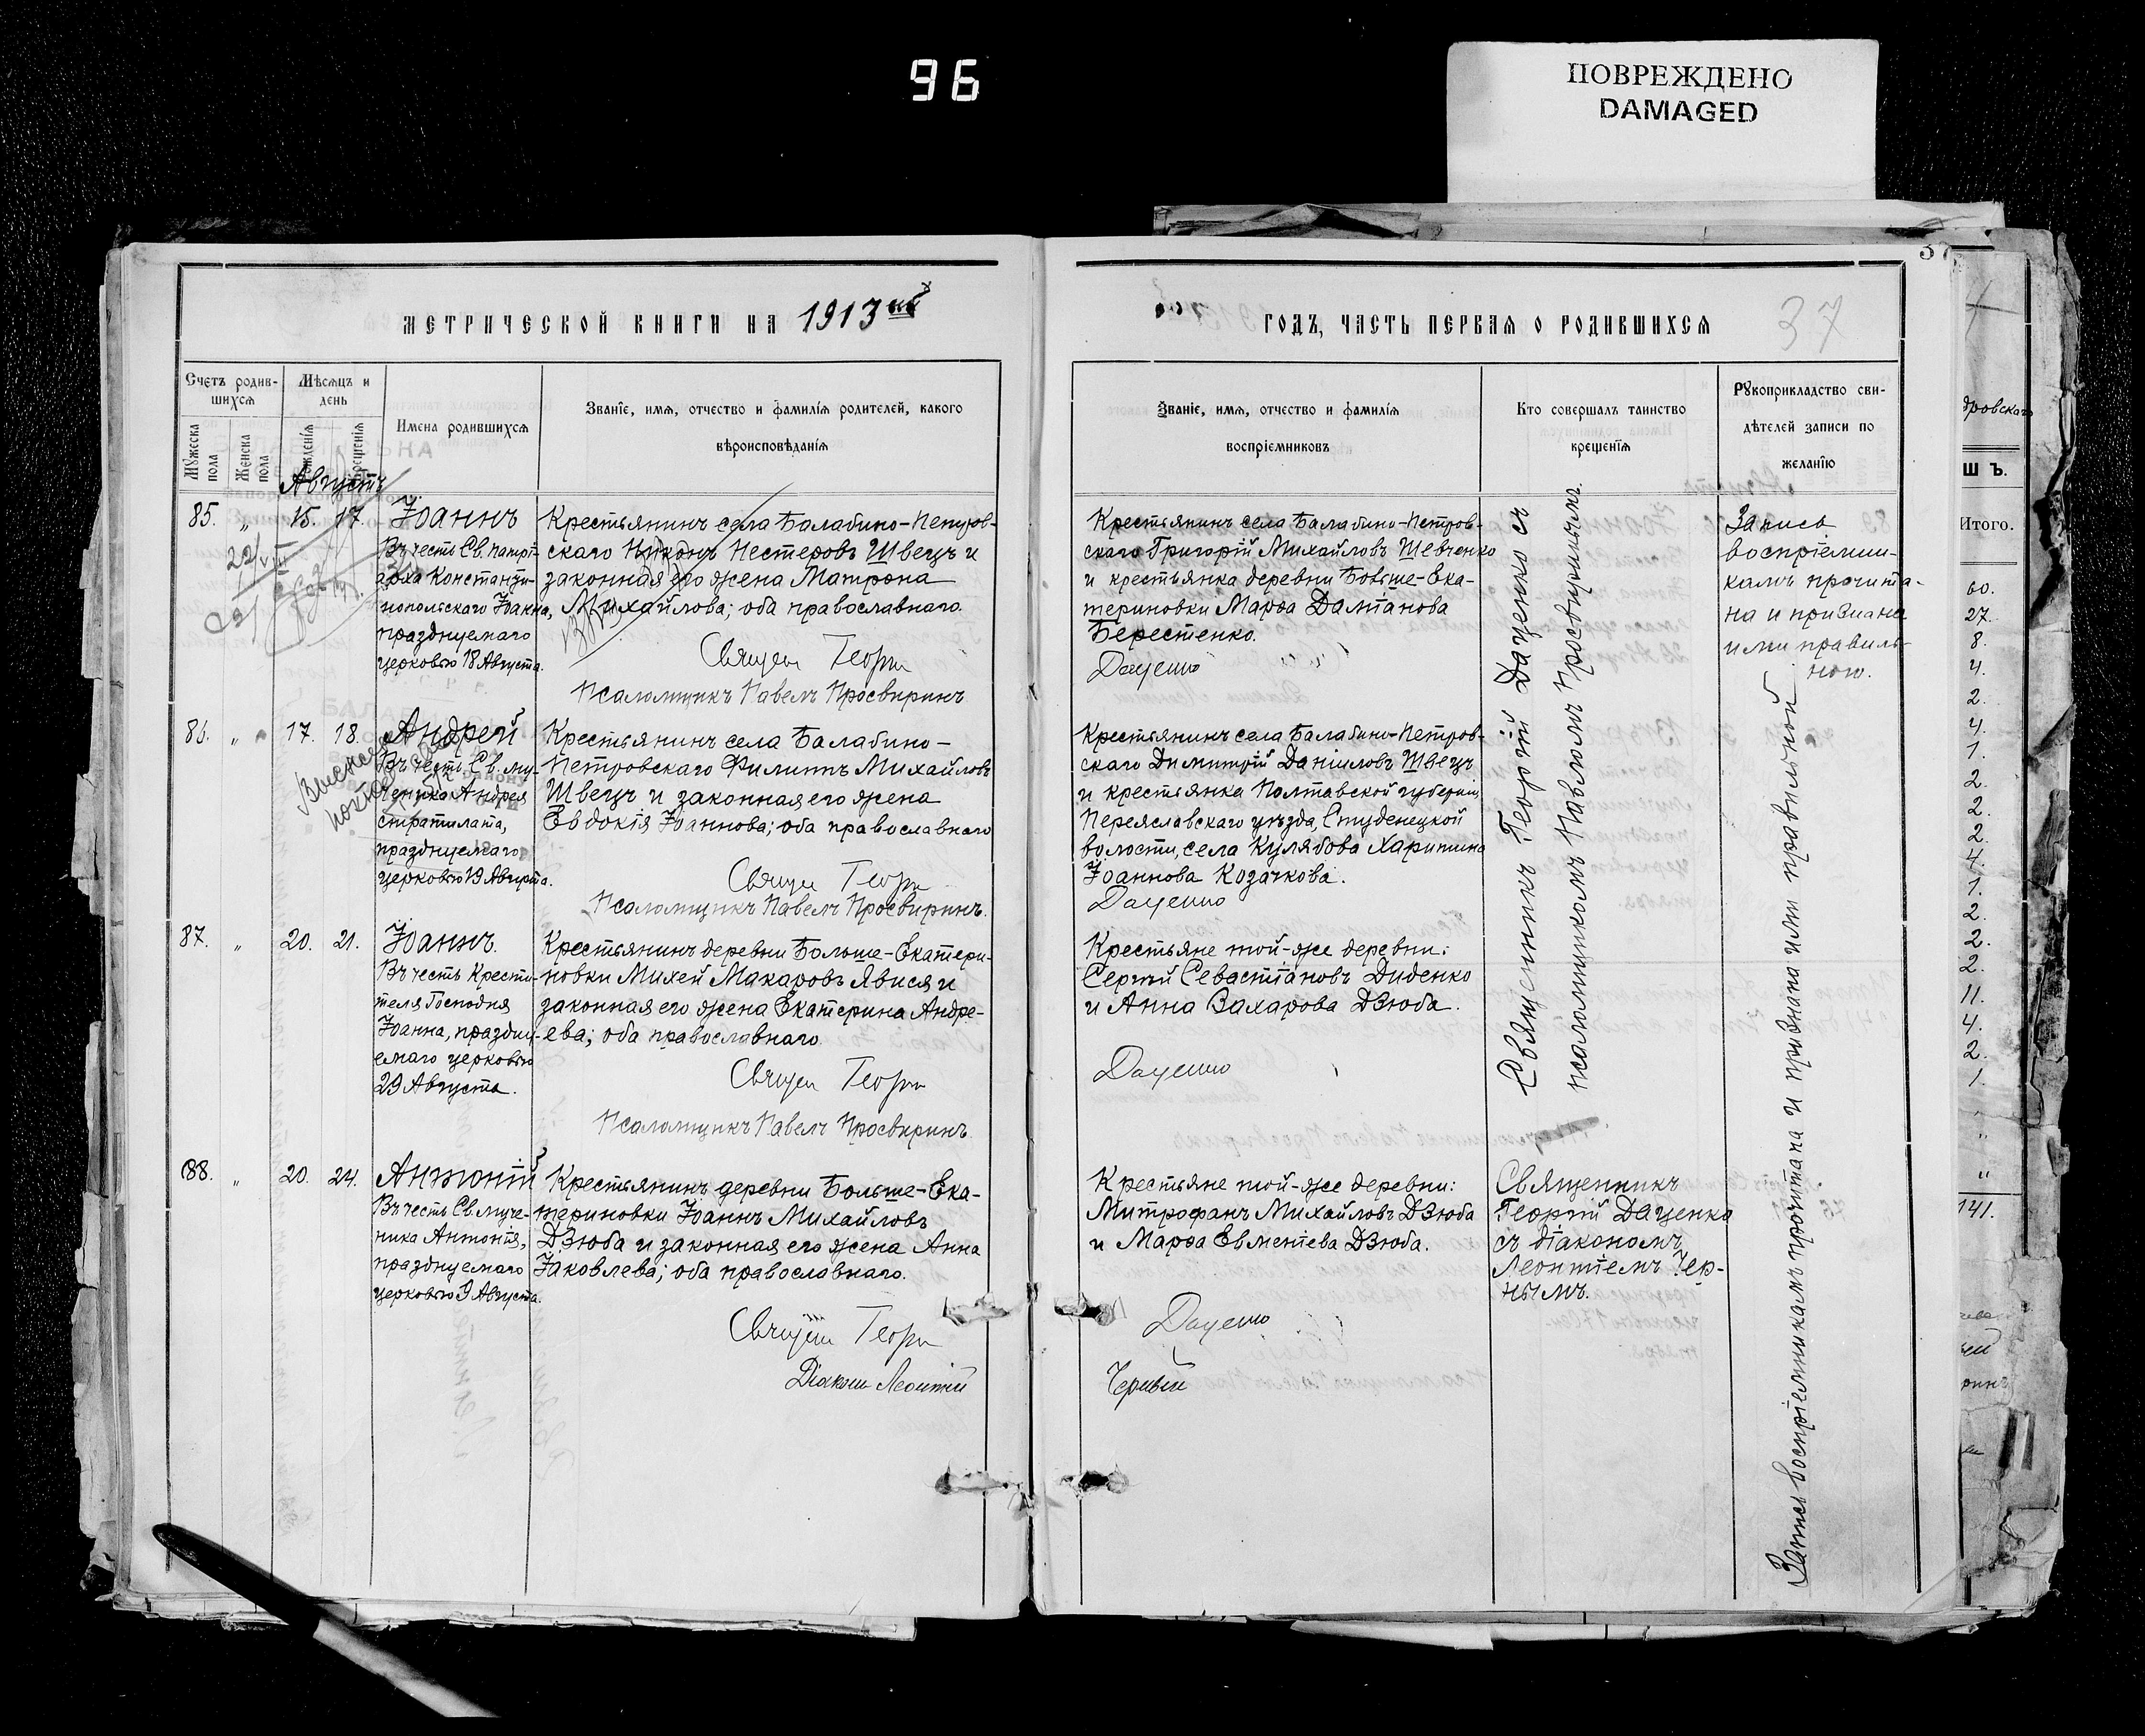 96
ПОВРЕЖДЕНО
DAMAGED
МЕТРИЧЕСКОЙ КНИГИ НА 1913ый
Счетъ родив-
шихся
Мужеска
пола
Женска
пола
Мѣсяцъ и
день
Рожденія
Крещенія
Имена родившихся
Званіе, имя, отчество и фамилія родителей, какого
вѣроисповѣданія
Августъ
85. „ 15. 17.
Іоаннъ
Въ честь Св. патрі-
арха Константи-
нопольскаго Іоанна,
празднуемаго
церковью 18 Августа.
Крестьянинъ села Балабино-Петров-
скаго Никонъ Нестеровъ Швецъ и
законная его жена Матрона
Михайлова; оба православнаго.
Священ Георгі
Псаломщикъ Павелъ Просвиринъ
86. „ 17. 18.
Андрей
Въ честь Св. му-
ченика Андрея
стратилата,
празднуемаго
церковью 19 Августа.
Крестьянинъ села Балабино-
Петровскаго Филиппъ Михайловъ
Швецъ и законная его жена
Евдокія Іоаннова; оба православнаго
Священ Георгі
Псаломщикъ Павелъ Просвиринъ.
87. „ 20. 21.
Іоаннъ.
Въ честь Крести-
теля Господня
Іоанна, праздну-
емаго церковью
29 Августа.
Крестьянинъ деревни Больше-Екатери-
новки Михей Макаровъ Явися и
законная его жена Екатерина Андре-
ева; оба православнаго
Священ Георгі
Псаломщикъ Павелъ Просвиринъ
88. „ 20. 24.
Антоній
Въ честь Св. муче-
ника Антонія,
празднуемаго
церковью 9 Августа.
Крестьянинъ деревни Больше-Ека-
териновки Іоаннъ Михайловъ
Дзюба и законная его жена Анна
Іаковлева; оба православнаго.
Священ Георгі
Діаконъ Леонтій
37
ГОДЪ, ЧАСТЬ ПЕРВАЯ О РОДИВШИХСЯ
37
Званіе, имя, отчество и фамилія
воспріемниковъ
Кто совершалъ таинство
крещенія
Рукоприкладство сви-
дѣтелей записи по
желанію
Крестьянинъ села Балабино-Петров-
скаго Григорій Михайловъ Шевченко
и крестьянка деревни Больше-Ека-
териновки Марѳа Даміанова
Берестенко.
Даценко
Крестьянинъ села Балабино-Петров-
скаго Димитрій Даніиловъ Швецъ
и крестьянка Полтавской губерніи,
Переяславскаго уѣзда, Студенецкой
волости, села Кулябова Харитина
Іоаннова Козачкова.
Даценко
Крестьяне той-же деревни:
Сергій Севастіановъ Диденко
и Анна Захарова Дзюба.
Даценко
Крестьяне той-же деревни:
Митрофанъ Михайловъ Дзюба
и Марѳа Евменіева Дзюба.
Даценко
Черный
Священникъ Георгій Даценко съ
псаломщикомъ Павломъ Просвиринымъ.
Священникъ
Георгій Даценко
съ діакономъ
Леонтіемъ Чер-
нымъ.
Запись
воспріемни-
камъ прочита-
на и признана
ими правиль-
ною.
Запись воспріемникамъ прочитана и признана ими правильной
Ш Ъ.
Итого.
60.
27.
8.
4.
2.
4.
1.
2.
2.
2.
4.
1.
2.
2.
2.
11.
4.
2.
1.
„
„
„
141.